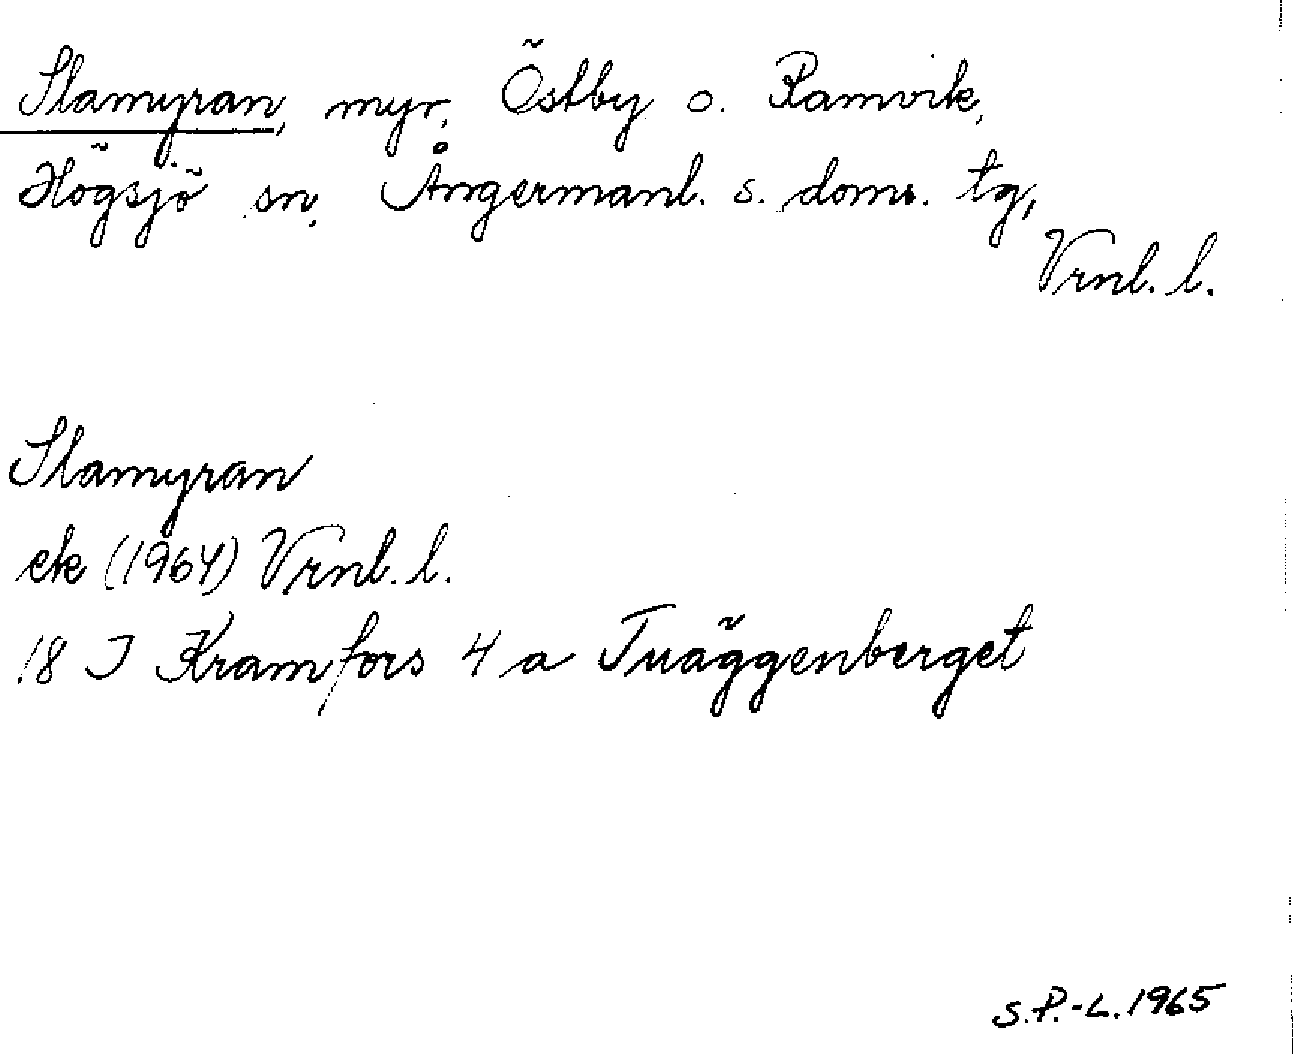 Slamyran, myr, Östby o. Ramvik,
Högsjö sn, Ångermanl. s. doms. tg,
Vrnl. l.
Slamyran
ek (1964) Vrnl. l.
18 I Kramfors 4 a Tuäggenberget
S.P.-L. 1965